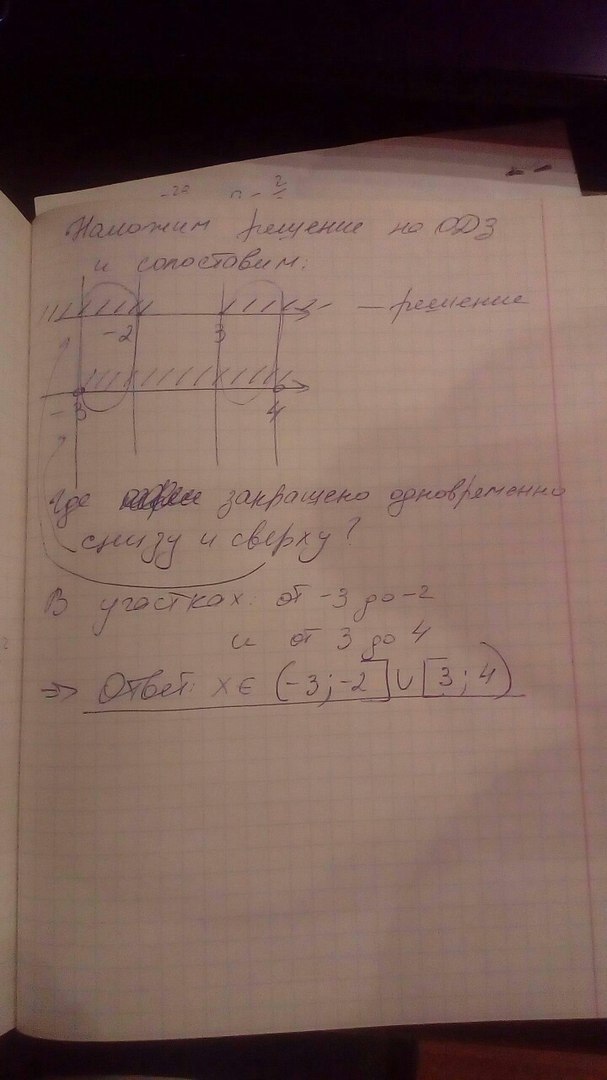 Наложим решение на ОДЗ
и сопоставим:
-2 3 — решение
-3 4
Где закрашено одновременно
снизу и сверху?
В участках: от -3 до -2
и от 3 до 4
=> Ответ: x ∈ (-3; -2] ∪ [3; 4)